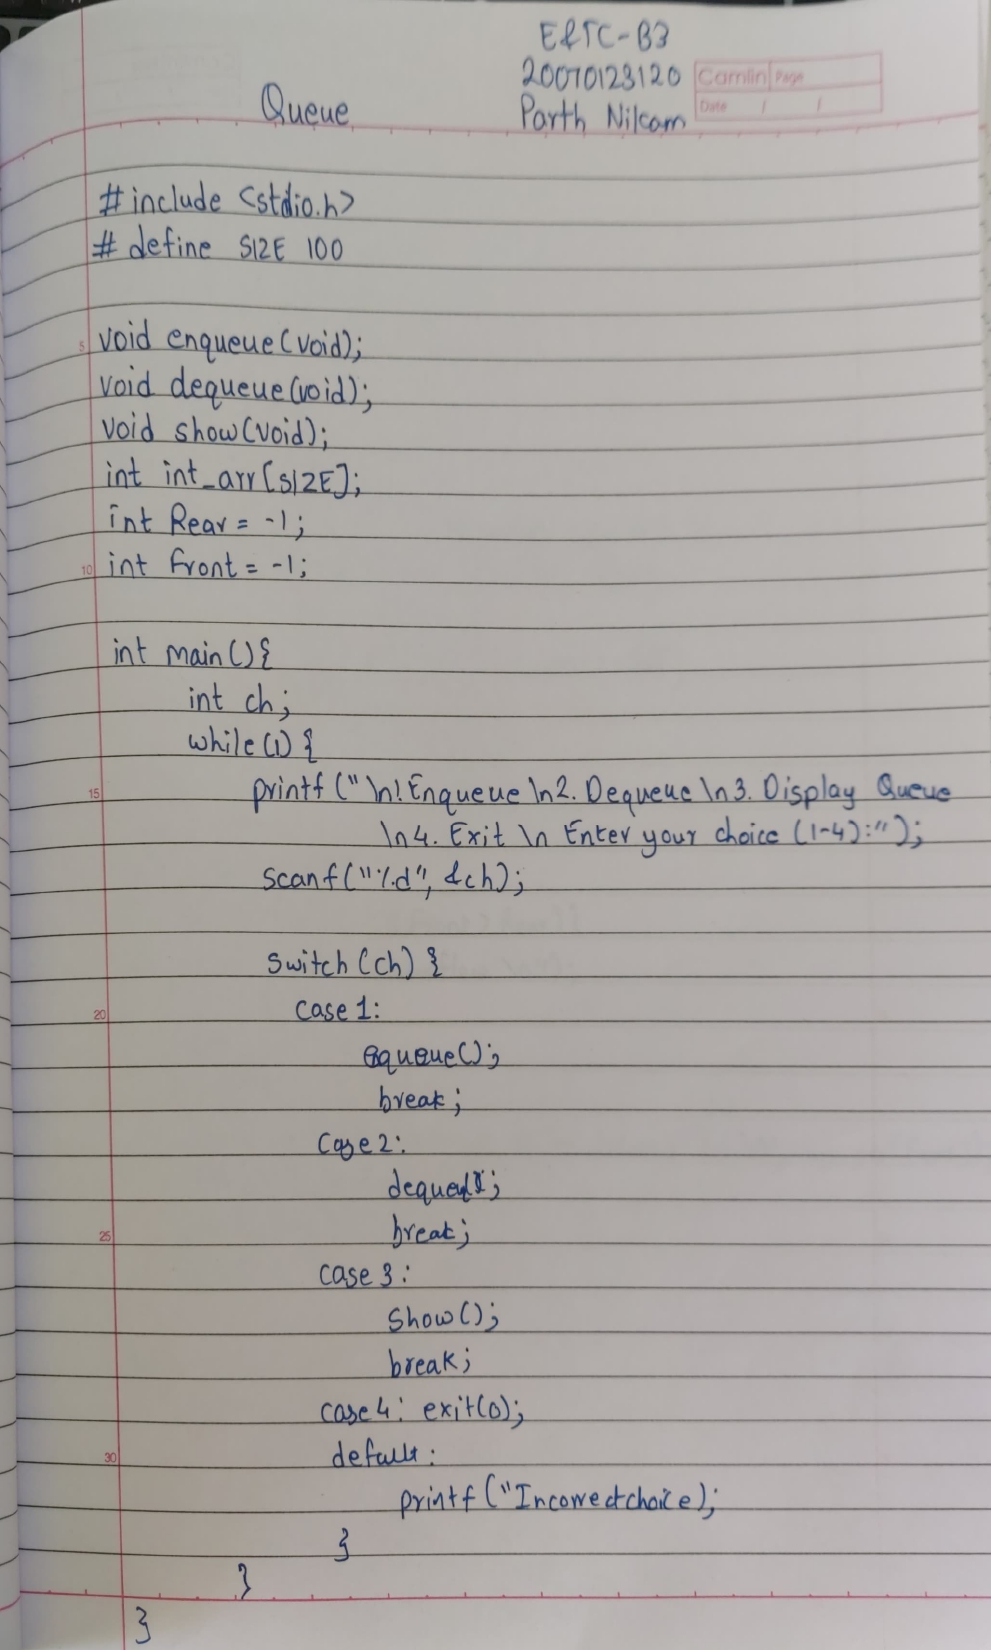 E&TC-B3
20070123120
Camlin Page
Date / /
Queue
Parth Nikam
#include <stdio.h>
# define SIZE 100
5
void enqueue(void);
void dequeue(void);
void show(void);
int int_arr[SIZE];
int Rear = -1;
10
int front = -1;
int main(){
int ch;
while(1) {
15
printf ("\n! Enqueue \n2. Dequeue \n3. Display Queue
\n4. Exit \n Enter your choice (1-4):");
scanf("%d", &ch);
switch (ch) {
20
case 1:
break;
Case 2:
25
break;
case 3:
show();
break;
case 4: exit(0);
30
printf ("Incorrect choice);
}
}
}